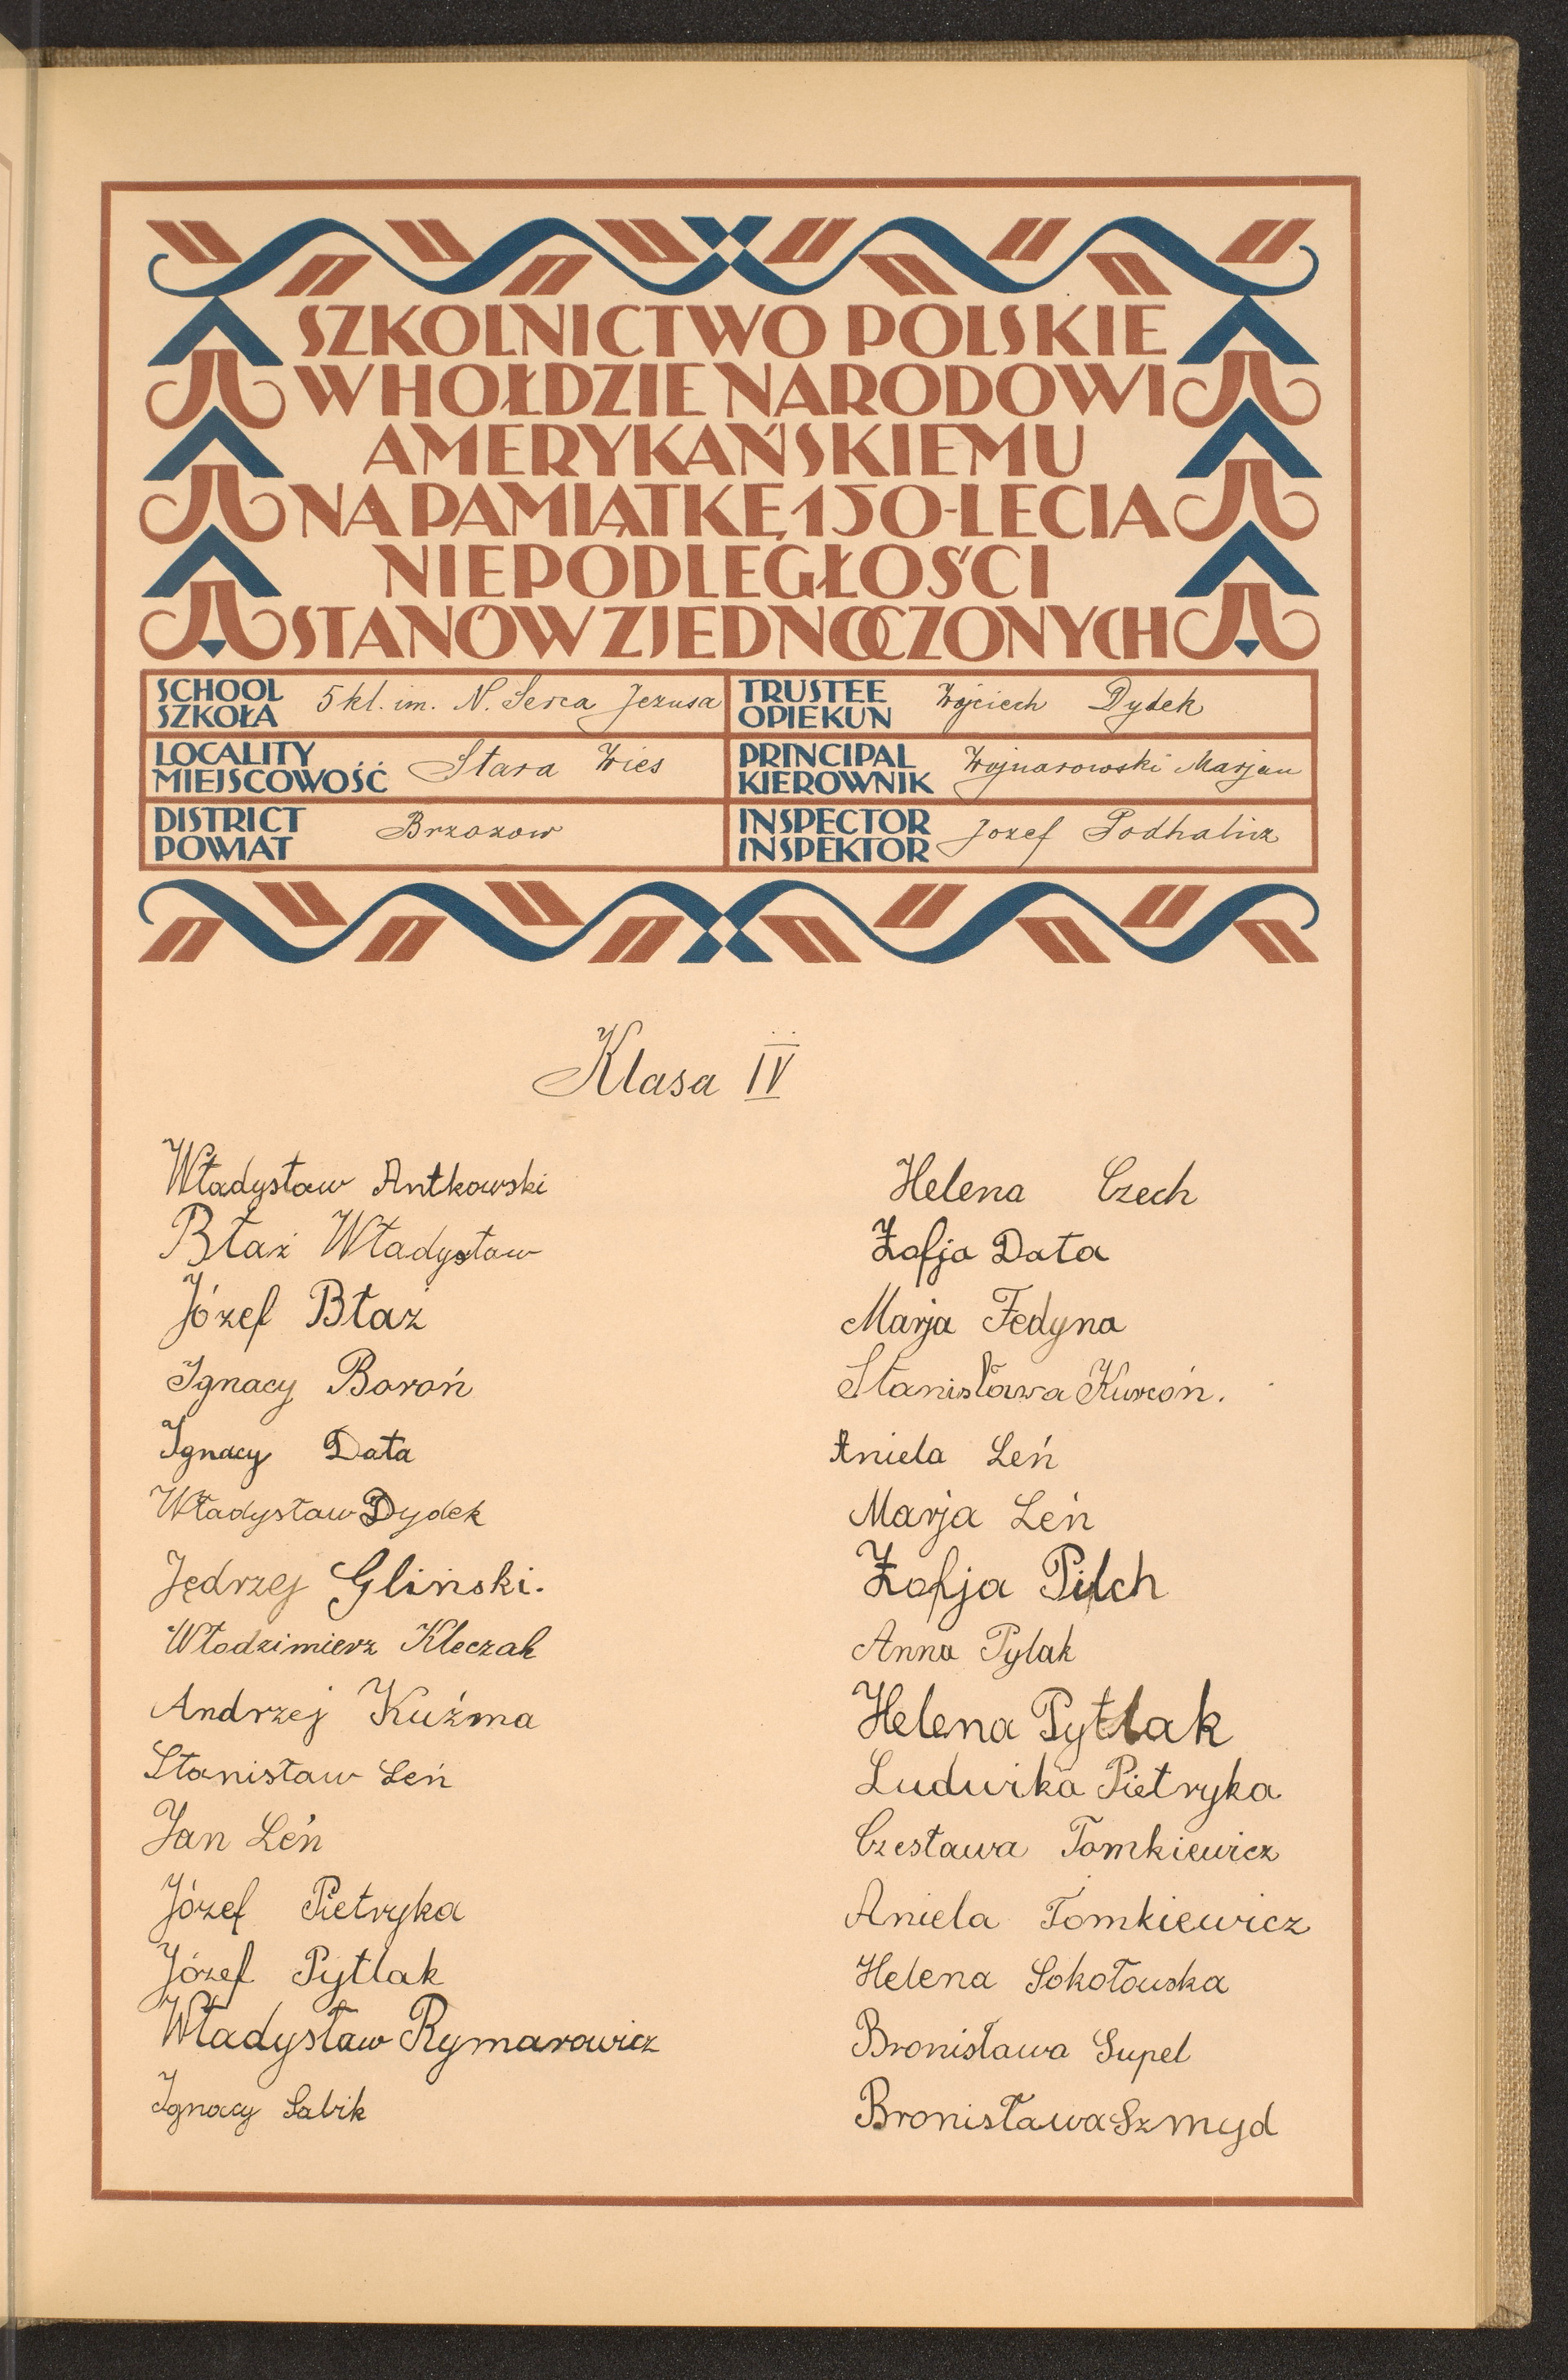 SZKOLNICTWO POLSKIE
W HOŁDZIE NARODOWI
AMERYKAŃSKIEMU
NA PAMIĄTKĘ 150-LECIA
NIEPODLEGŁOŚCI
STANÓW ZJEDNOCZONYCH
SCHOOL
SZKOŁA
5 kl. im. N. Serca Jezusa
TRUSTEE
OPIEKUN
Wojciech Dydek
LOCALITY
MIEJSCOWOŚĆ
Stara Wieś
PRINCIPAL
KIEROWNIK
Wojnarowski Marjan
DISTRICT
POWIAT
Brzozow
INSPECTOR
INSPEKTOR
Jozef Podhalicz
Klasa IV
Władysław Antkowski
Błaż Władysław
Józef Błaż
Ignacy Boroń
Ignacy Data
Władysław Dydek
Jędrzej Gliński.
Włodzimierz Kleczak
Andrzej Kuźma
Stanisław Leń
Jan Leń
Józef Pietryka
Józef Pytlak
Władysław Rymarowicz
Ignacy Sabik
Helena Czech
Zofja Data
Marja Fedyna
Stanisława Kurcoń.
Aniela Leń
Marja Leń
Zofja Pilch
Anna Pylak
Helena Pytlak
Ludwika Pietryka
Czesława Tomkiewicz
Aniela Tomkiewicz
Helena Sokołowska
Bronisława Supel
Bronisława Szmyd